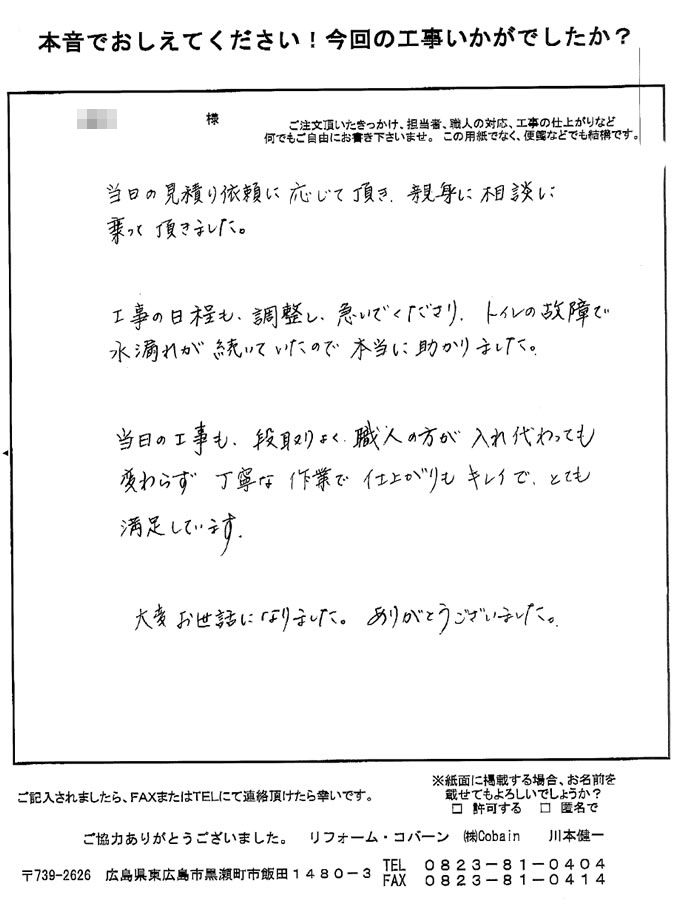 本音でおしえてください！今回の工事いかがでしたか？
様
ご注文頂いたきっかけ、担当者、職人の対応、工事の仕上がりなど
何でもご自由にお書き下さいませ。この用紙でなく、便箋などでも結構です。
当日の見積り依頼に応じて頂き、親身に相談に
乗って頂きました。
工事の日程も、調整し、急いでくださり、トイレの故障で
水漏れが続いていたので本当に助かりました。
当日の工事も、段取りよく、職人の方が入れ代わっても
変わらず丁寧な作業で仕上がりもキレイで、とても
満足しています。
大変お世話になりました。ありがとうございました。
ご記入されましたら、FAXまたはTELにて連絡頂けたら幸いです。
※紙面に掲載する場合、お名前を
載せてもよろしいでしょうか？
□ 許可する □ 匿名で
ご協力ありがとうございました。 リフォーム・コバーン ㈱Cobain 川本健一
〒739-2626 広島県東広島市黒瀬町市飯田１４８０－３
TEL ０８２３－８１－０４０４
FAX ０８２３－８１－０４１４